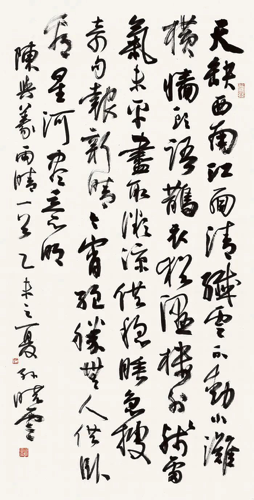 天缺西南江面清纖雲不動小灘
橫牆頭語鵲衣猶溼樓外殘雷
氣未平盡取微涼供穩睡急搜
奇句報新晴今宵絕勝無人供卧
看星河尽意明
陳與義雨晴一首乙未之夏孫曉雲